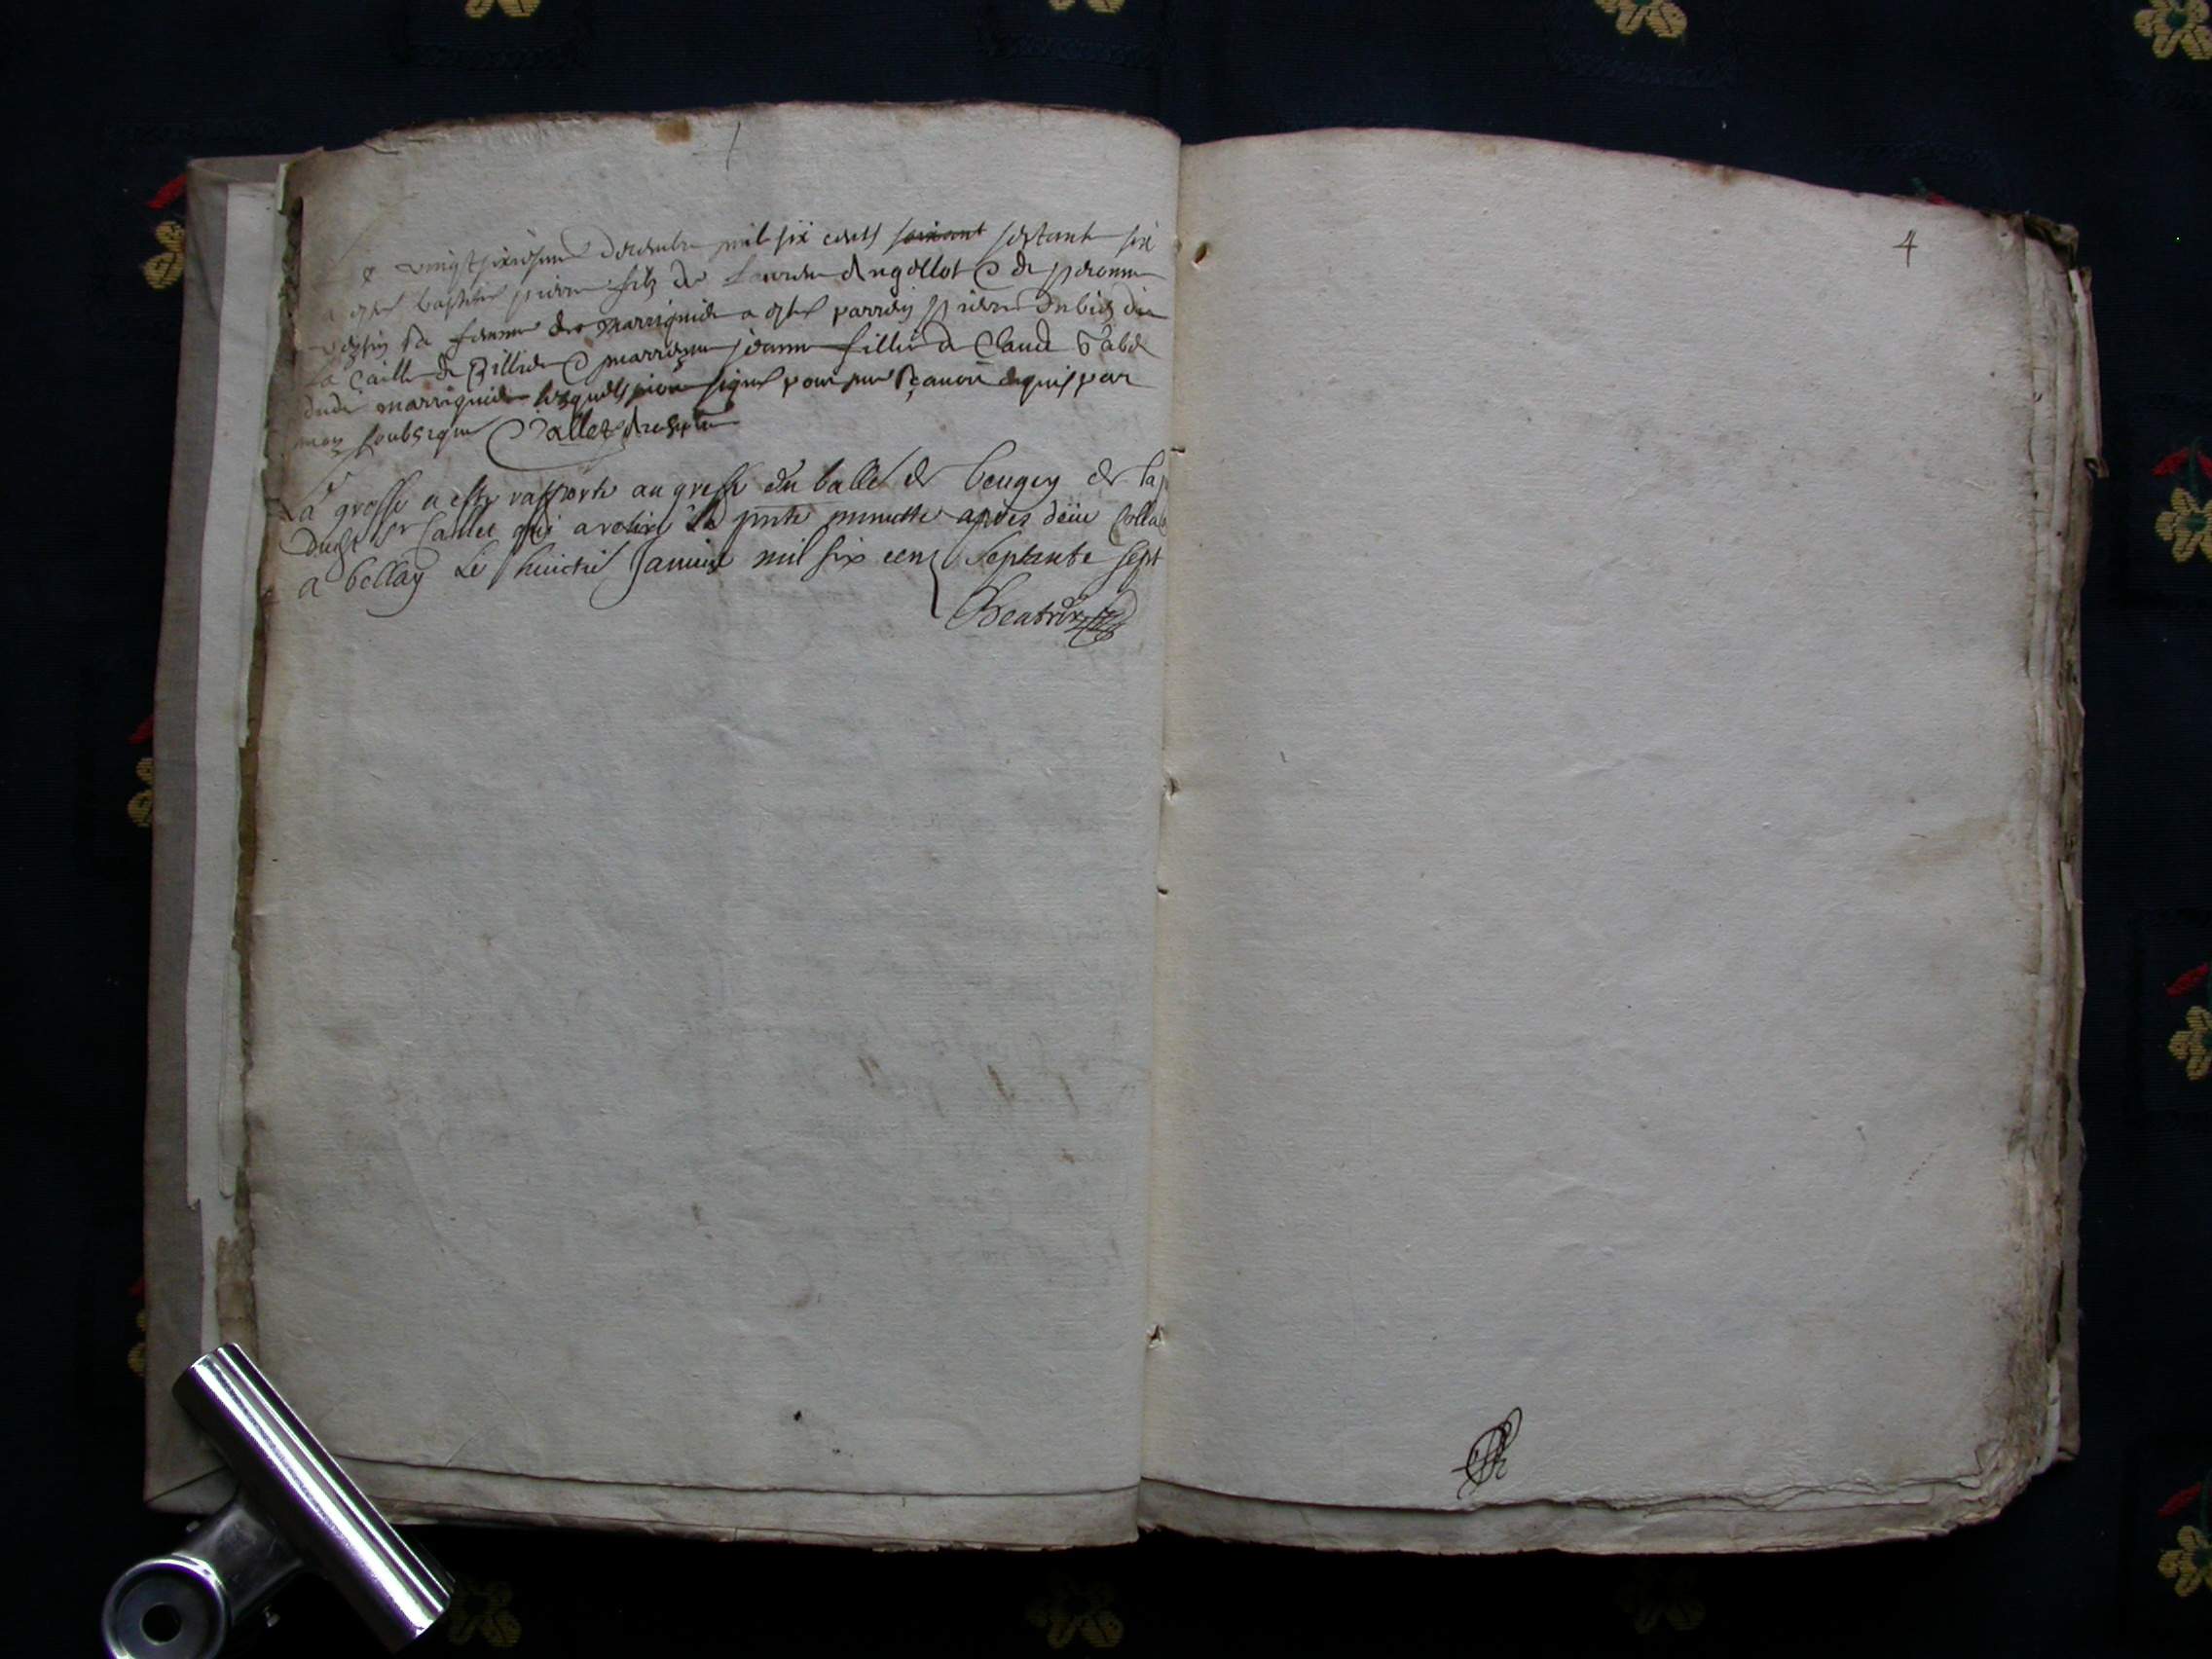 vingtsixiesme decembre mil six cents soixant septante six
a esté baptisé pierre filz de Laurent Angellot & de peronne
sa femme de Marrignieu a esté parrein pierre Dubiez dit
la Caille de Billieu & marreine jeanne fillie de Claude
dudi marrignieu lesquels nont signé pour ne sçavoir enquis par
moy soubsigné Callet
La grosse a esté rapporte au greffe du balle de beugey
dudit Sr Callet qui a retiré la pnte minutte apres deüe Colla
a bellay Le huictie Janvier mil six cens septante sept
Beatrix
4